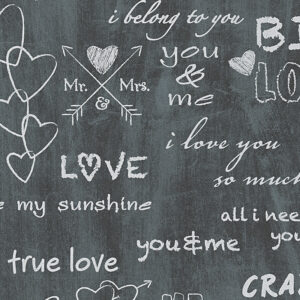 i belong to you
you
&
me
Mr. & Mrs.
i love you
LOVE
so much
my sunshine
all i need
you
you&me
true love